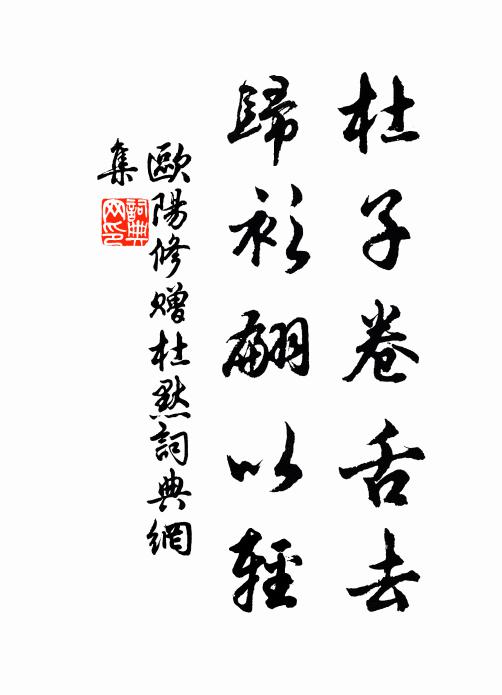 杜子卷舌去
歸衫翩以輕
歐陽修贈杜默詞典網
集
詞典
网印